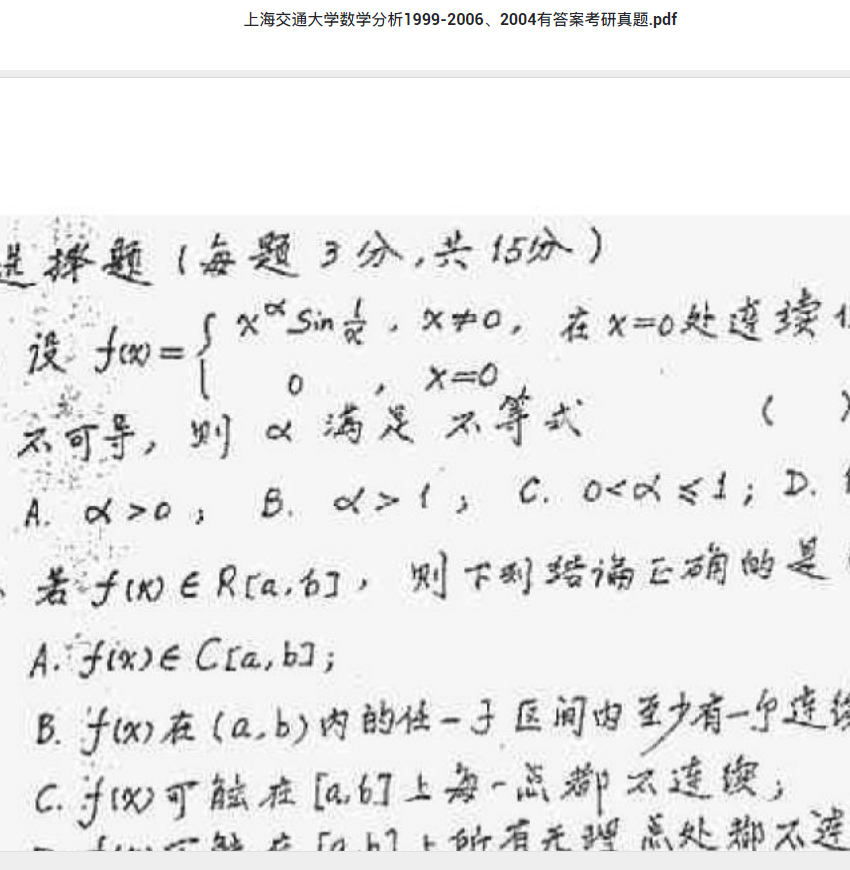 上海交通大学数学分析1999-2006、2004有答案考研真题.pdf
选择题（每题3分,共15分）
设 f(x)={ x^α Sin 1/x , x≠0, 在x=0处连续
0 , x=0
不可导, 则 α 满足 不等式 ( )
A. α>0; B. α>1; C. 0<α≤1; D.
若 f(x)∈R[a,b], 则下列结论正确的是
A. f(x)∈C[a,b];
B. f(x)在(a,b)内的任一子区间内至少有一个连续
C. f(x)可能在[a,b]上每一点都不连续;
f(x)可能在[a,b]上所有无理点处都不连